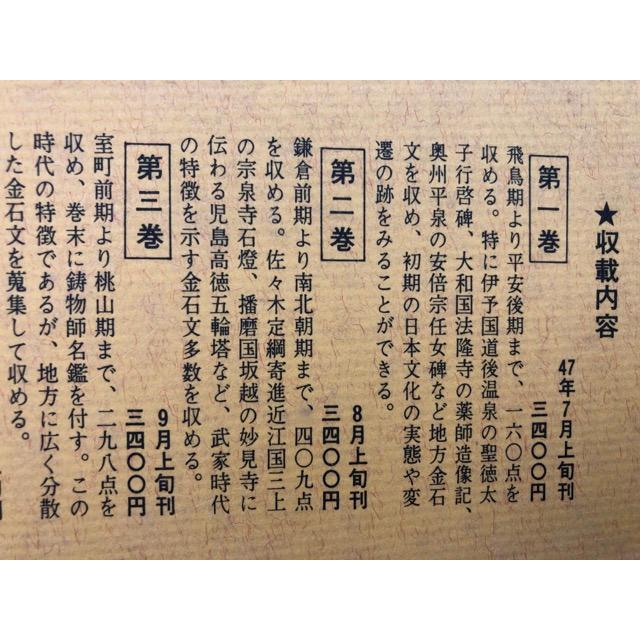 ★収載内容
第一巻
47年7月上旬刊
三四〇〇円
飛鳥期より平安後期まで、一六〇点を
収める。特に伊予国道後温泉の聖徳太
子行啓碑、大和国法隆寺の薬師造像記、
奥州平泉の安倍宗任女碑など地方金石
文を収め、初期の日本文化の実態や変
遷の跡をみることができる。
第二巻
8月上旬刊
三四〇〇円
鎌倉前期より南北朝期まで、四〇九点
を収める。佐々木定綱寄進近江国三上
の宗泉寺石燈、播磨国坂越の妙見寺に
伝わる児島高徳五輪塔など、武家時代
の特徴を示す金石文多数を収める。
第三巻
9月上旬刊
三四〇〇円
室町前期より桃山期まで、二九八点を
収め、巻末に鋳物師名鑑を付す。この
時代の特徴であるが、地方に広く分散
した金石文を蒐集して収める。